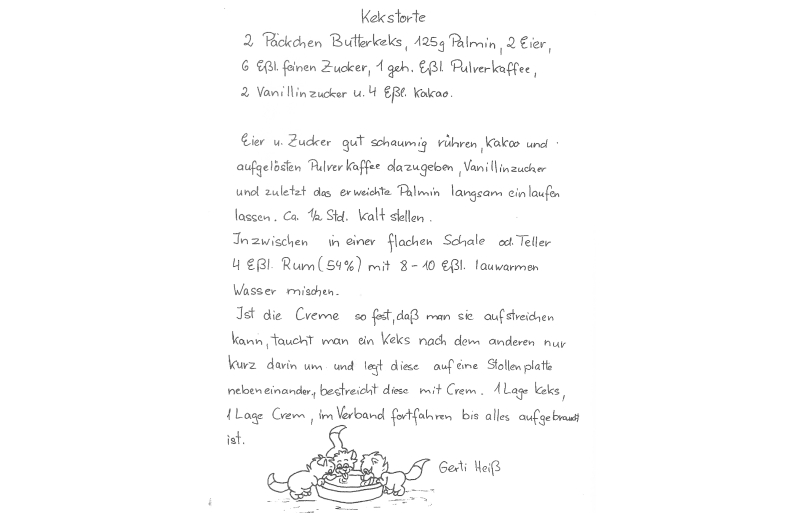 Kekstorte
2 Päckchen Butterkeks, 125g Palmin, 2 Eier,
6 Eßl. feinen Zucker, 1 geh. Eßl. Pulverkaffee,
2 Vanillinzucker u. 4 Eßl. Kakao.
Eier u. Zucker gut schaumig rühren, Kakao und
aufgelösten Pulverkaffee dazugeben, Vanillinzucker
und zuletzt das erweichte Palmin langsam einlaufen
lassen. Ca. 1/2 Std. kalt stellen.
Inzwischen in einer flachen Schale od. Teller
4 Eßl. Rum (54%) mit 8-10 Eßl. lauwarmen
Wasser mischen.
Ist die Creme so fest, daß man sie aufstreichen
kann, taucht man ein Keks nach dem anderen nur
kurz darin um und legt diese auf eine Stollenplatte
nebeneinander, bestreicht diese mit Crem. 1 Lage Keks,
1 Lage Crem, im Verband fortfahren bis alles aufgebraucht
ist.
Gerti Heiß